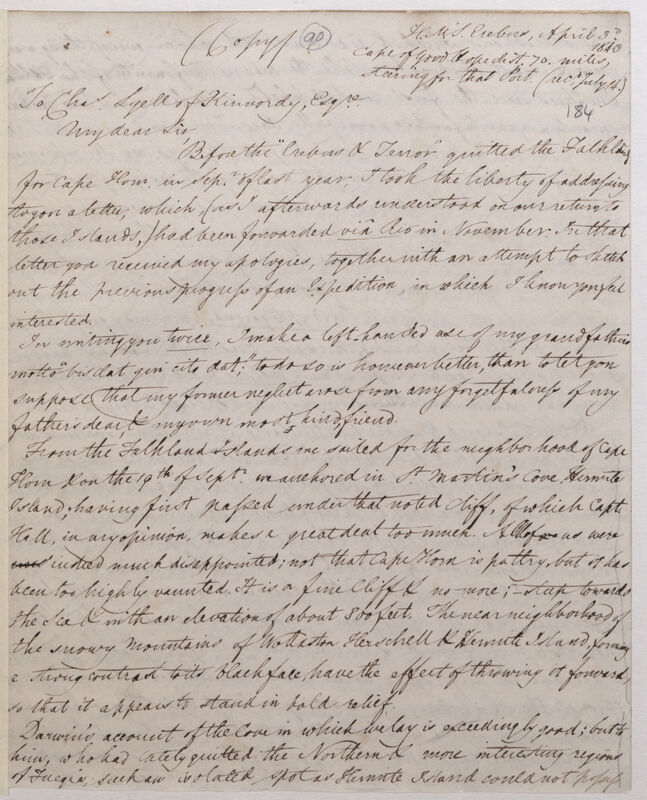 (Copy) 90 H.M.S. Erebus, April 3d 1843
Cape of Good Hope dist. 70. miles,
steering for that Port. (recd July 4.)
184
To Chas. Lyell of Kinnordy, Esqre.
My dear Sir
Before the "Erebus & Terror" quitted the Falklands
for Cape Horn, in Sepr. of last year, I took the liberty of addressing
to you a letter, which (as I afterwards understood on our return to
those Islands,) had been forwarded via Rio in November. In that
letter you received my apologies, together with an attempt to sketch
out the previous progress of an Expedition, in which I know you feel
interested.
For writing you twice, I make a left-handed use of my grandfather's
motto "bis dat qui cito dat;" to do so is however better, than to let you
suppose that my former neglect arose from any forgetfulness of my
father's dear & my own most kind friend.
From the Falkland Islands we sailed for the neighborhood of Cape
Horn & on the 19th of Sept. we anchored in St. Martin's Cove, Hermite
Island; having first passed under that noted cliff, of which Capt.
Hall, in my opinion, makes a great deal too much. All of us were
indeed much disappointed; not that Cape Horn is paltry, but it has
been too highly vaunted. It is a fine Cliff & no more; steep towards
the Sea & with an elevation of about 800 feet. The near neighborhood of
the snowy mountains of Wollaston Herschell & Hermite Island, forming
a strong contrast to its black face, have the effect of throwing it forward,
so that it appears to stand in bold relief.
Darwin's account of the Cove in which we lay is exceedingly good; but to
him, who had lately quitted the Northern & more interesting regions
of Fuegia, such an isolated spot as Hermite Island could not possess